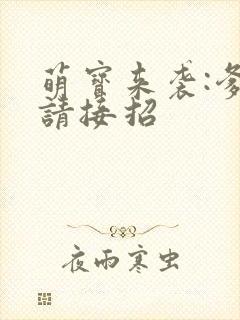 萌寶来袭:爹
請接招
夜雨寒虫